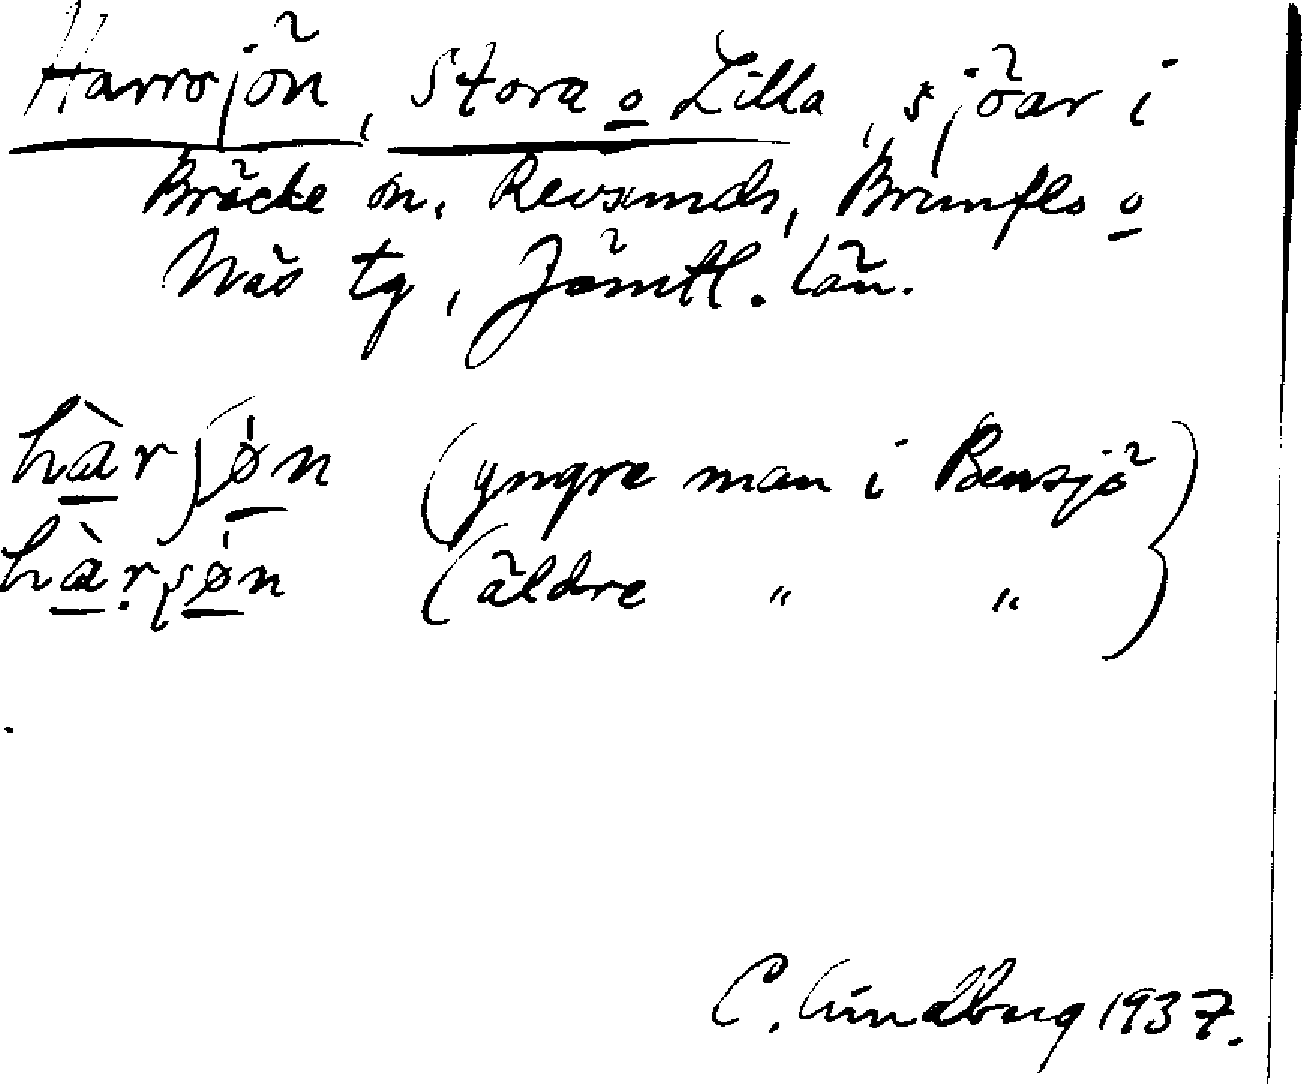 Harrsjön, Stora o Lilla, sjöar i
Bräcke sn, Revsunds, Brunflo o
Näs tg, Jämtl. län.
hàrʃø̀n (yngre man i Bensjö)
hàrṣøn (äldre " ")
C. Lindberg 1937.